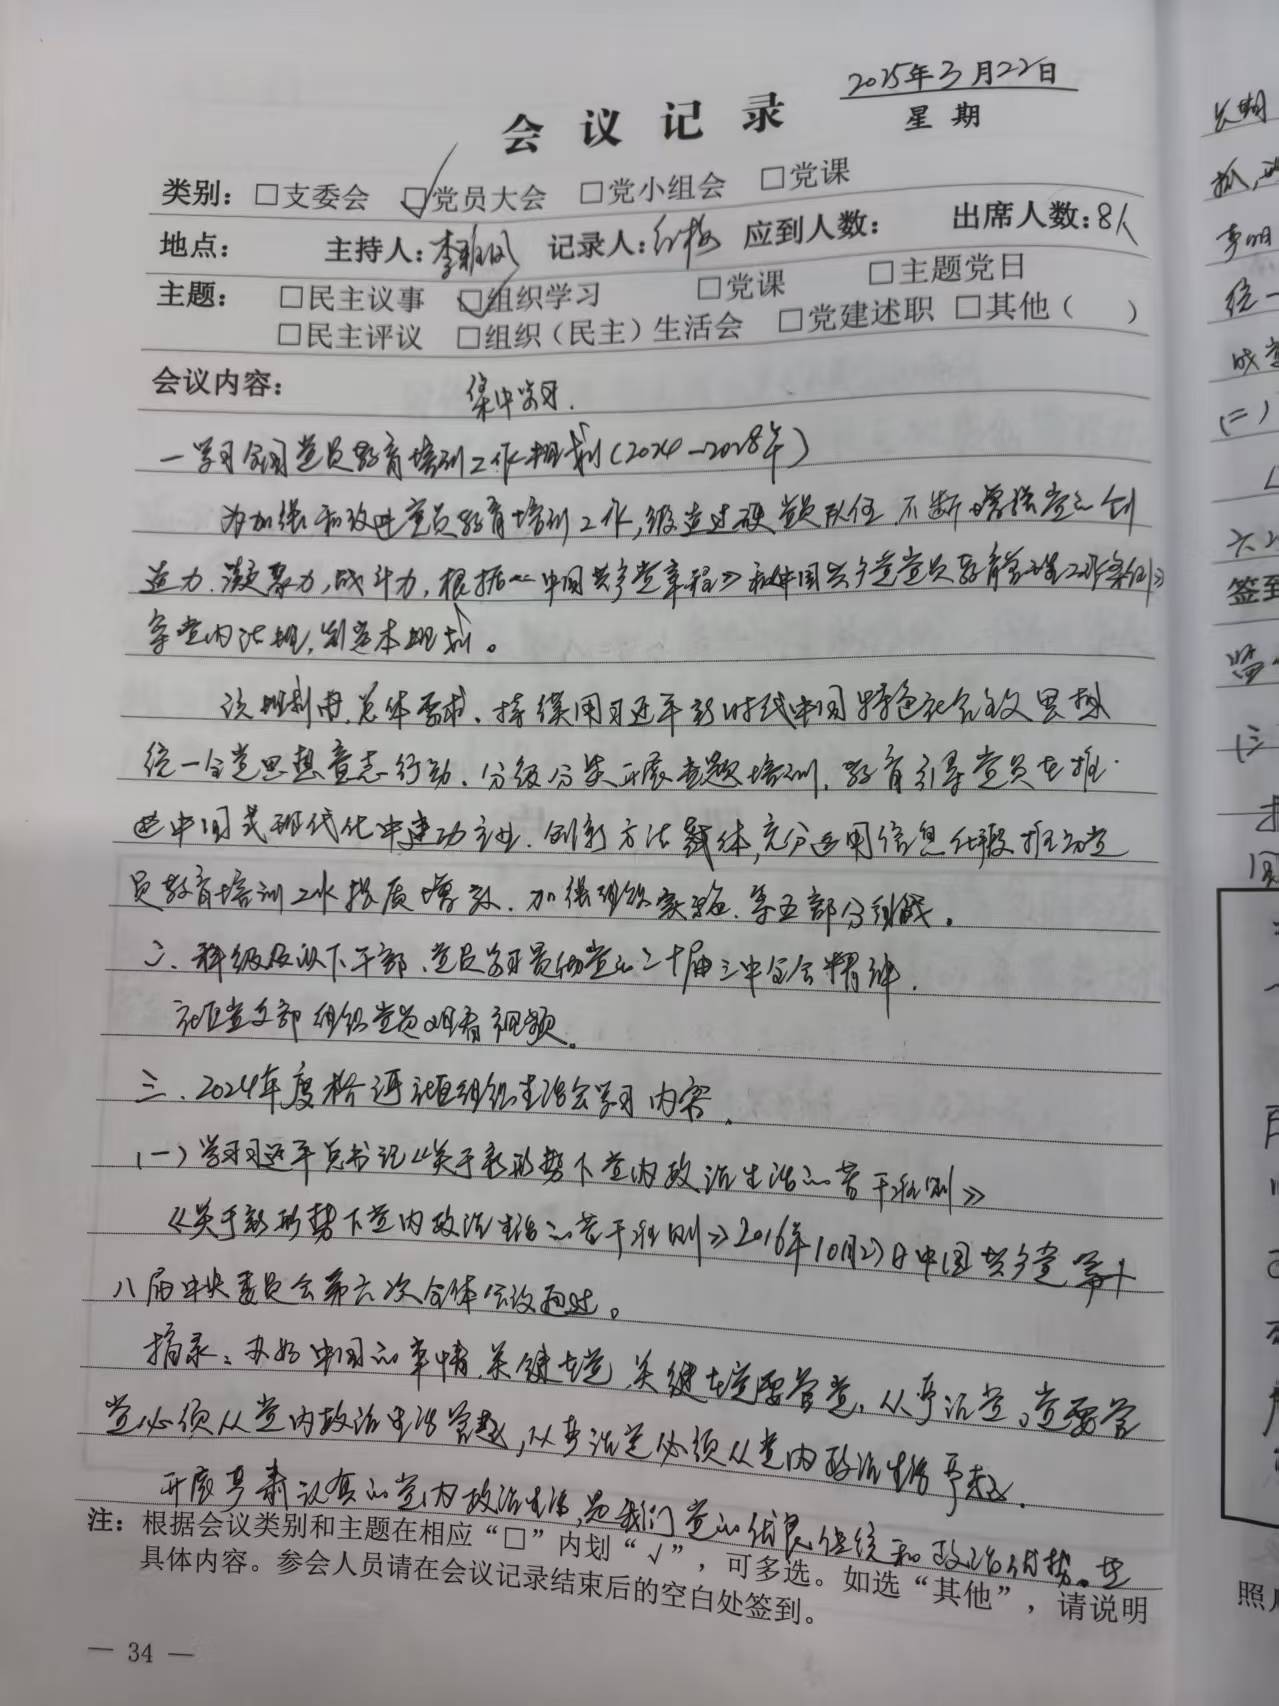 2025年3月22日
会议记录
星期
类别：□支委会 ☑党员大会 □党小组会 □党课
地点： 主持人：李 记录人：红梅 应到人数： 出席人数：8人
主题： □民主议事 ☑组织学习 □党课 □主题党日
□民主评议 □组织（民主）生活会 □党建述职 □其他（ ）
会议内容： 集中学习.
一学习全国党员教育培训工作规划（2024—2028年）
为加强和改进党员教育培训工作,锻造过硬党员队伍.不断增强党的创
造力.凝聚力,战斗力,根据《中国共产党章程》和《中国共产党党员教育管理工作条例》
等党内法规,制定本规划。
该规划由.总体要求、持续用习近平新时代中国特色社会主义思想
统一全党思想意志行动.分级分类开展专题培训.教育引导党员在推
进中国式现代化中建功立业.创新方法载体,充分运用信息化手段推动党
员教育培训工作提质增效.加强组织实施.等五部分组成。
二.科级及以下干部.党员学习贯彻党的二十届三中全会精神.
社区党支部组织党员观看视频。
三.2024年度 社区组织生活会学习内容.
(一)学习习近平总书记《关于新形势下党内政治生活的若干准则》
《关于新形势下党内政治生活的若干准则》2016年10月27日中国共产党第十
八届中央委员会第六次全体会议通过。
摘录:办好中国的事情.关键在党.关键在党要管党.从严治党。党要管
党必须从党内政治生活管起,从严治党必须从党内政治生活严起.
开展严肃认真的党内政治生活,是我们党的优良传统和政治优势。在
注：根据会议类别和主题在相应“□”内划“√”，可多选。如选“其他”，请说明
具体内容。参会人员请在会议记录结束后的空白处签到。
— 34 —
长期
统一
(二)
签到
(三
照